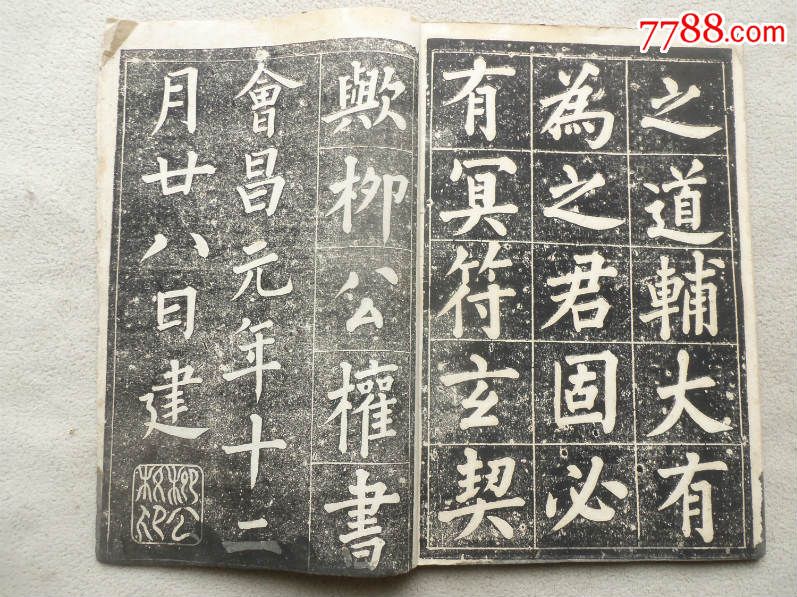 7788.com
之道輔大有
為之君固必
有冥符玄契
歟柳公權書
會昌元年十二
月廿八日建